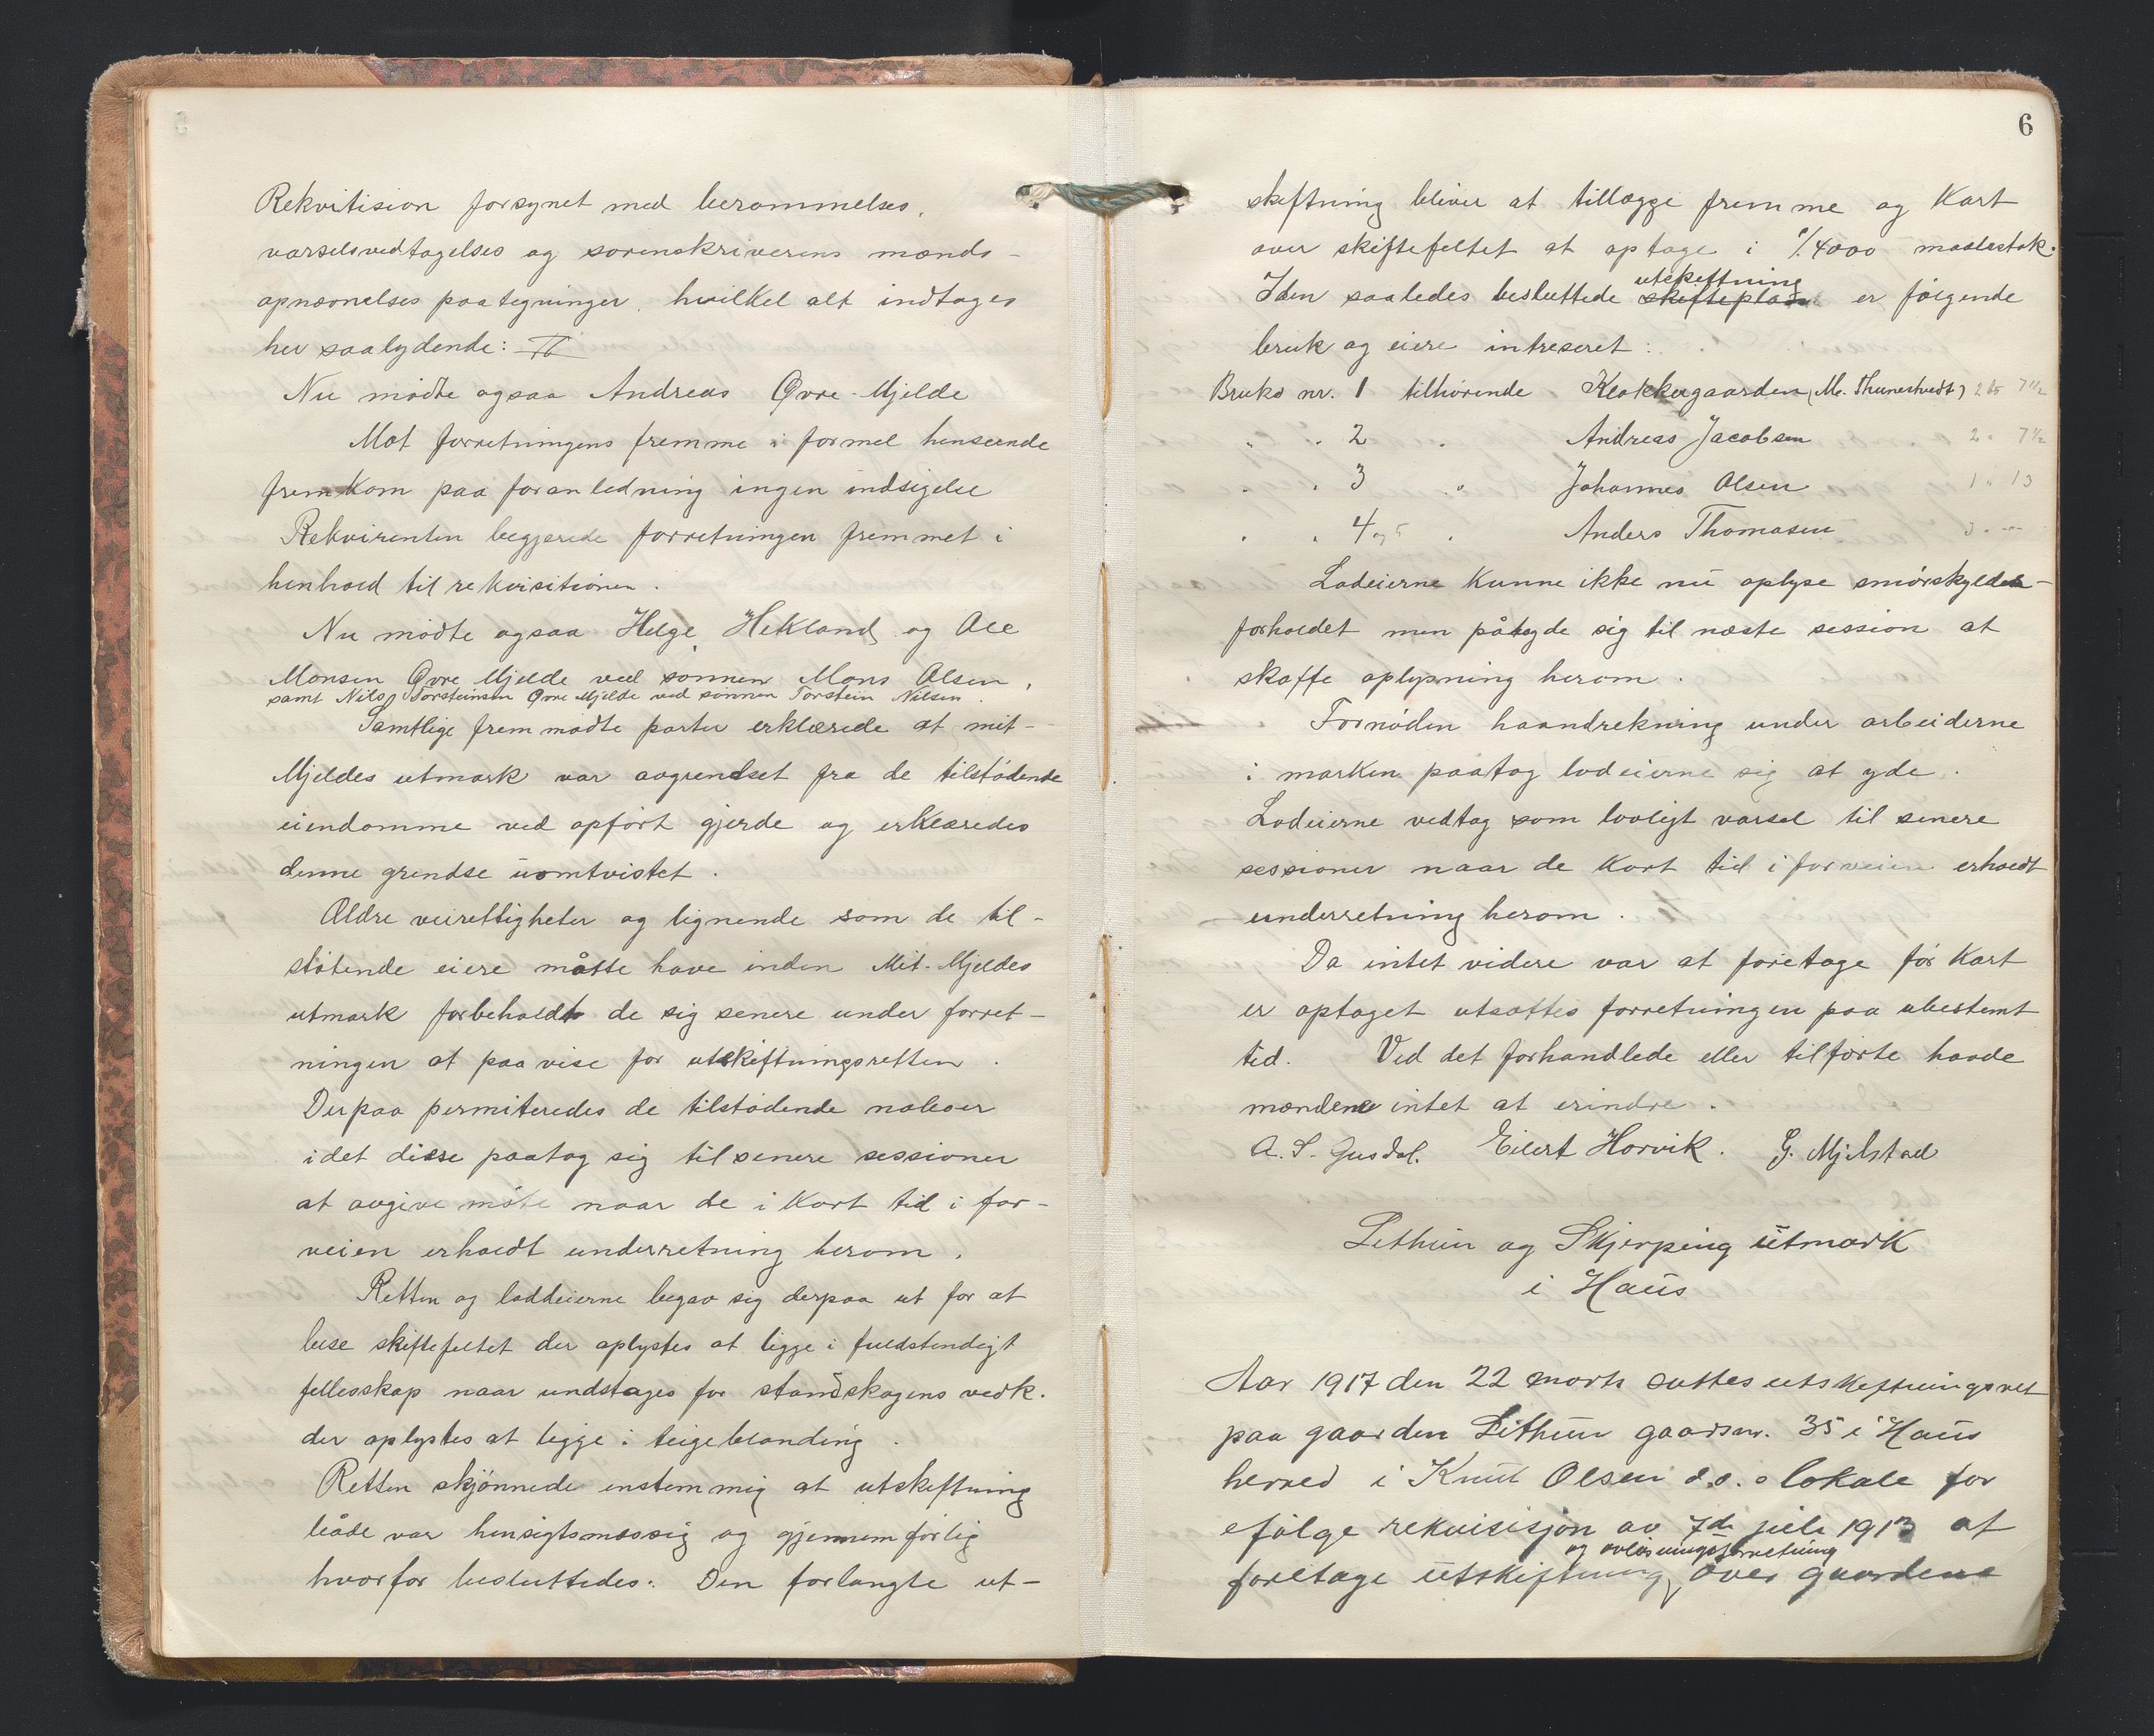 Rekvitision forsynet med berammelses,
varselsvedtagelses og sorenskriverens mænds-
opnævnelses paategninger, hvilket alt indtages
her saalydende:
Nu mødte ogsaa Andreas Øvre-Mjelde
Mot forretningens fremme i formel henseende
fremkom paa foranledning ingen indsigelse
Rekvirenten begjærede forretningen fremmet i
henhold til rekvisitionen.
Nu mødte ogsaa Helge Hekland og Ole
Monsen Øvre Mjelde ved sønnen Mons Olsen,
samt Nils Torsteinsen Øvre Mjelde ved sønnen Torstein Nilsen.
Samtlige fremmødte parter erklærede at mit-
Mjeldes utmark var avgrendset fra de tilstødende
eiendomme ved opført gjerde og erklæredes
denne grendse uomtvistet.
Ældre veirettigheter og lignende som de til-
støtende eiere måtte have inden Mit-Mjeldes
utmark forbeholdt de sig senere under forret-
ningen at paavise for utskiftningsretten.
Derpaa permiteredes de tilstødende naboer
idet disse paatog sig til senere sessioner
at avgive møte naar de i kort tid i for-
veien erholdt underretning herom.
Retten og loddeierne begav sig derpaa ut for at
bese skiftefeltet der oplystes at ligge i fuldstendigt
fellesskap naar undtages for standskogens vedk.
der oplystes at ligge i teigeblanding.
Retten skjønnede enstemmig at utskiftning
både var hensigtsmæssig og gjennemførlig
hvorfor besluttedes: Den forlangte ut-
6
skiftning bliver at tillægge fremme og Kart
over skiftefeltet at optage i 1/4000 maalestok.
I den saaledes besluttede skifteplan utskiftning er følgende
bruk og eiere intreseret:
Bruks nr. 1 tilhørende Klokkergaarden (Me. Thunestvedt) 2 7 1/2
" " 2 " Andreas Jacobsen 2 " 7 1/2
" " 3 " Johannes Olsen 1 " 13
" " 4 og 5 " Anders Thomasen 3 " -
Lodeierne kunne ikke nu oplyse smørskylds-
forholdet men påtogde sig til næste session at
skaffe oplysning herom.
Fornøden haandrekning under arbeiderne
i marken paatog lodeierne sig at yde.
Lodeierne vedtog som lovligt varsel til senere
sessioner naar de kort tid i forveien erholdt
underretning herom.
Da intet videre var at foretage før Kart
er optaget utsættes forretningen paa ubestemt
tid. Ved det forhandlede eller tilførte havde
mændene intet at erindre.
A. S. Gusdal. Eilert Horvik. G. Mjelstad
Lethun og Skjerping utmark
i Haus
Aar 1917 den 22 marts sattes utskiftningsret
paa gaarden Lithun gaardsnr. 35 i Haus
herred i Knut Olsen d.s.s lokale for
efølge rekvisisjon av 7de juli 1913 at
foretage utskiftning og avløsningsforretning over gaardene